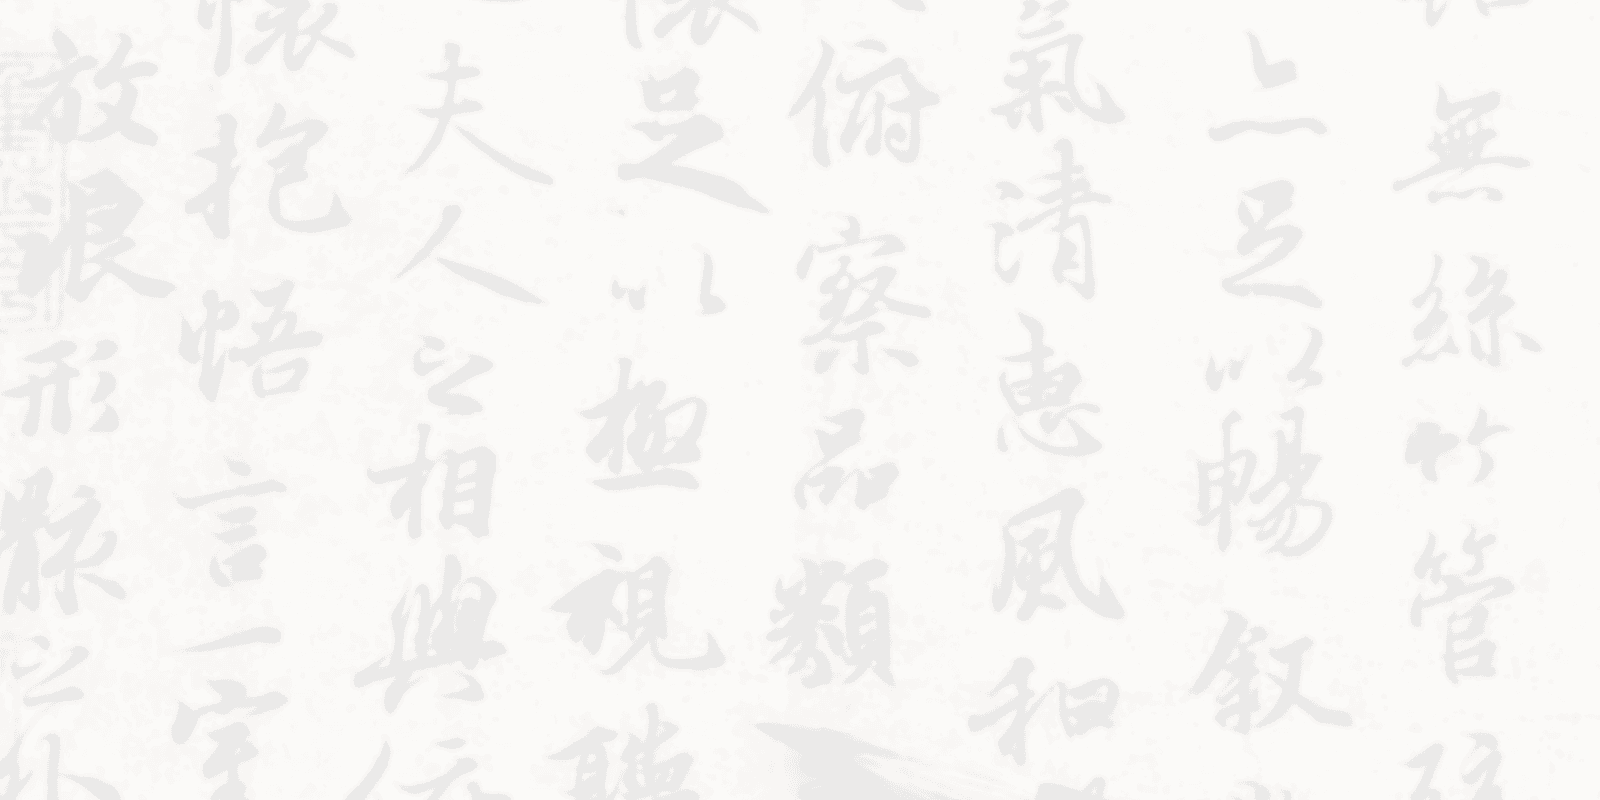 無絲竹管
亦足以暢叙
氣清惠風和
俯察品類
懷足以極視聽
夫人之相與
懷抱悟言一室
放浪形骸之外